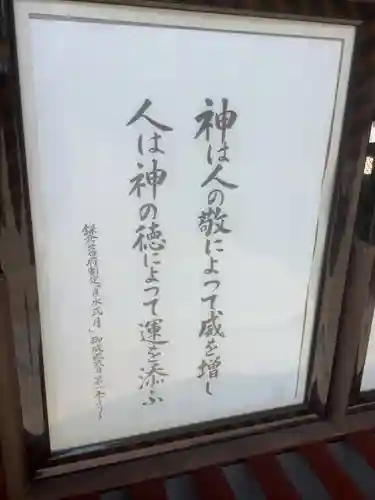 神は人の敬によって威を増し
人は神の徳によって運を添ふ
鎌倉幕府制定「貞永式目」御成敗式目第一条より